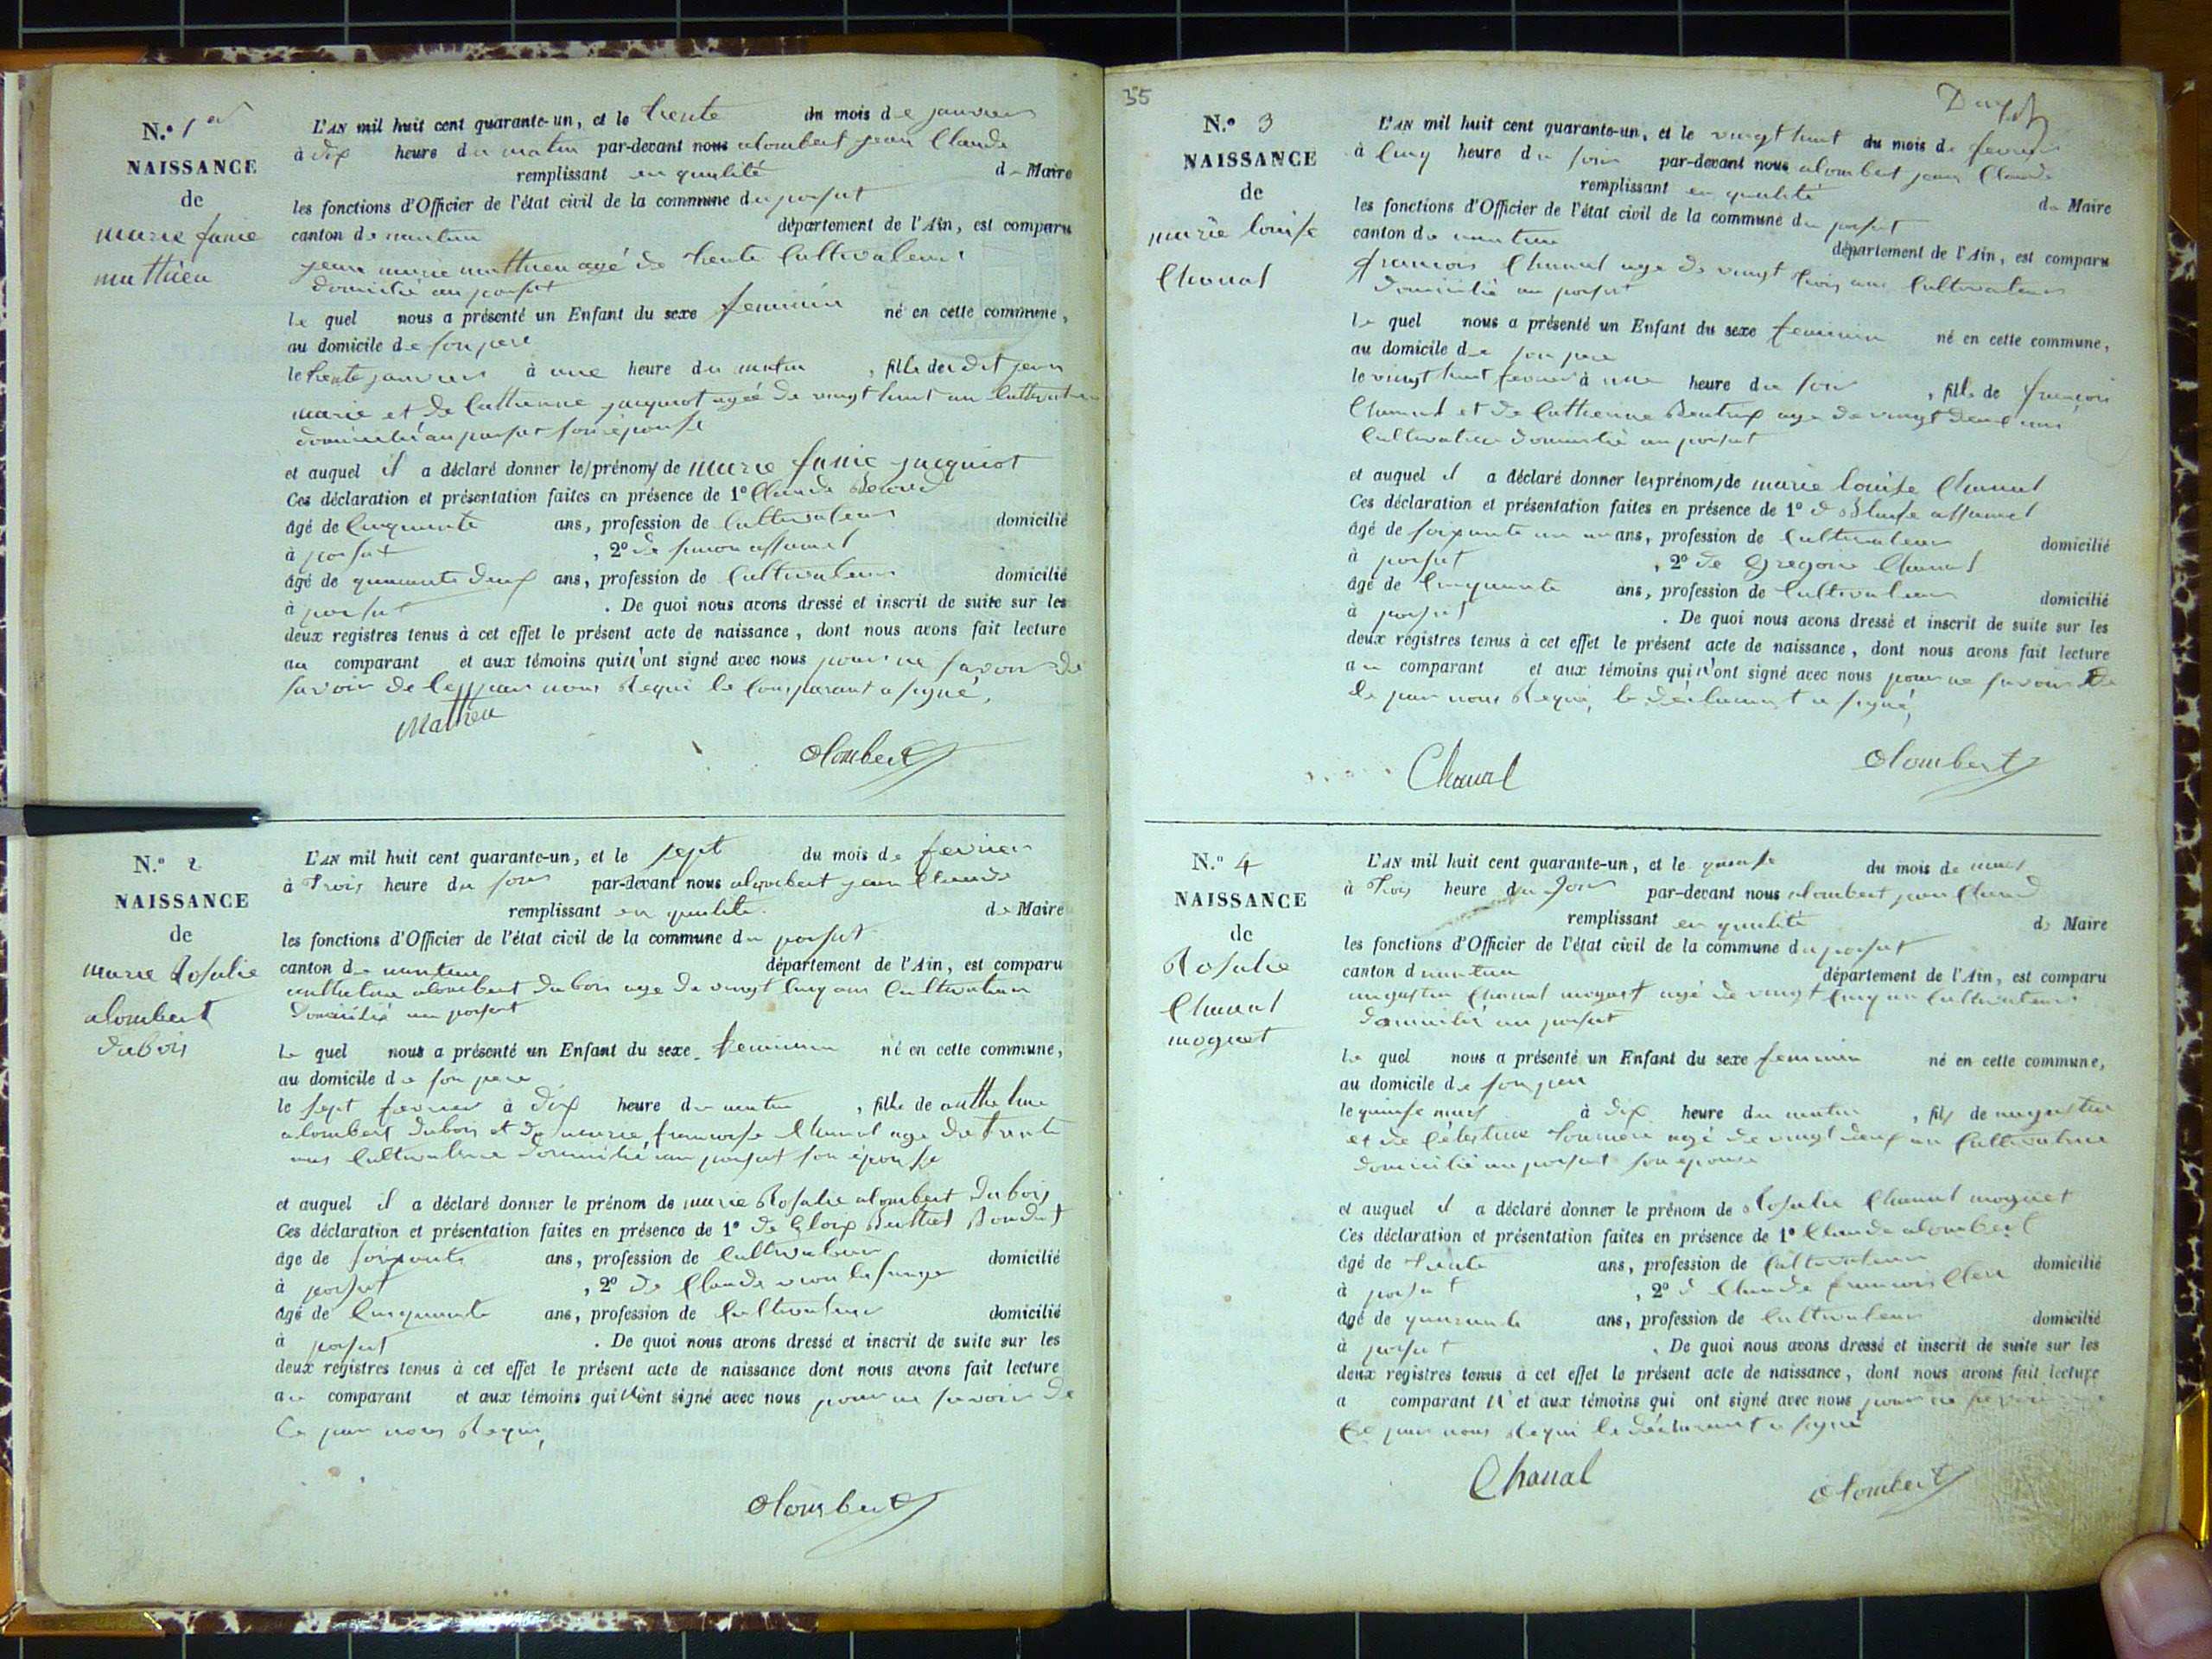 N.º 1er
NAISSANCE
de
marie fanie
mathieu
L'AN mil huit cent quarante-un, et le trente du mois de janvier
à dix heure du matin par-devant nous alombert jean Claude
remplissant en qualité de Maire
les fonctions d'Officier de l'état civil de la commune du porsat
canton de nantua département de l'Ain, est comparu
jean marie mathieu agé de trente Cultivateur
domicilié au porsat
le quel nous a présenté un Enfant du sexe feminin né en cette commune,
au domicile de son pere
le trente janvier à une heure du matin, fille du dit jean
marie et de Catherine jacquiot agée de vingt huit an Cultivatrice
domicilié au porsat son épouse
et auquel il a déclaré donner le prénom de marie fanie jacquiot
Ces déclaration et présentation faites en présence de 1º Claude
âgé de Cinquante ans, profession de Cultivateur domicilié
à porsat, 2º de simon assumel
âgé de quarante deux ans, profession de Cultivateur domicilié
à porsat. De quoi nous avons dressé et inscrit de suite sur les
deux registres tenus à cet effet le présent acte de naissance, dont nous avons fait lecture
au comparant et aux témoins qui n'ont signé avec nous pour ne savoir de
savoir de Ce par nous Requi le Comparant a signé,
Mathieu
Alombert
N.º 2
NAISSANCE
de
marie Rosalie
alombert
dubois
L'AN mil huit cent quarante-un, et le sept du mois de fevrier
à trois heure du soir par-devant nous alombert jean Claude
remplissant en qualité de Maire
les fonctions d'Officier de l'état civil de la commune du porsat
canton de nantua département de l'Ain, est comparu
anthelme alombert dubois age de vingt Cinq ans Cultivateur
domicilié au porsat
le quel nous a présenté un Enfant du sexe feminin né en cette commune,
au domicile de son pere
le sept fevrier à dix heure du matin, fille de anthelme
alombert dubois et de marie francoise Chanal age de trente
ans Cultivatrice domicilié au porsat son épouse
et auquel il a déclaré donner le prénom de marie Rosalie alombert dubois
Ces déclaration et présentation faites en présence de 1º de
âge de soixante ans, profession de Cultivateur domicilié
à porsat, 2º de Claude
âgé de Cinquante ans, profession de Cultivateur domicilié
à porsat. De quoi nous avons dressé et inscrit de suite sur les
deux registres tenus à cet effet le présent acte de naissance dont nous avons fait lecture
au comparant et aux témoins qui n'ont signé avec nous pour ne savoir de
Ce par nous Requi,
Alombert
35
N.º 3
NAISSANCE
de
marie louise
Chanal
L'AN mil huit cent quarante-un, et le vingt huit du mois de fevrier
à Cinq heure du soir par-devant nous alombert jean Claude
remplissant en qualité de Maire
les fonctions d'Officier de l'état civil de la commune du porsat
canton de nantua département de l'Ain, est comparu
francois Chanal age de vingt trois ans Cultivateur
domicilié au porsat
le quel nous a présenté un Enfant du sexe feminin né en cette commune,
au domicile de son pere
le vingt huit fevrier à une heure du soir, fille de francois
Chanal et de Catherine Beatrix age de vingt deux ans
Cultivatrice domicilié au porsat
et auquel il a déclaré donner les prénom de marie louise Chanal
Ces déclaration et présentation faites en présence de 1º de Blaise assumel
âgé de soixante un ans, profession de Cultivateur domicilié
à porsat, 2º de Gregoire Chanal
âgé de Cinquante ans, profession de Cultivateur domicilié
à porsat. De quoi nous avons dressé et inscrit de suite sur les
deux registres tenus à cet effet le présent acte de naissance, dont nous avons fait lecture
au comparant et aux témoins qui n'ont signé avec nous pour ne savoir de
Ce par nous Requi, le déclarant a signé,
Chanal
Alombert
N.º 4
NAISSANCE
de
Rosalie
Chanal
moguet
L'AN mil huit cent quarante-un, et le quinse du mois de mars
à trois heure du soir par-devant nous alombert jean Claud
remplissant en qualité de Maire
les fonctions d'Officier de l'état civil de la commune du porsat
canton d nantua département de l'Ain, est comparu
augustin Chanal moguet agé de vingt Cinq an Cultivateur
domicilié au porsat
le quel nous a présenté un Enfant du sexe feminin né en cette commune,
au domicile de son pere
le quinse mars à dix heure du matin, fils de augustin
et de Célestine agé de vingt deux an Cultivatrice
domicilié au porsat son épouse
et auquel il a déclaré donner le prénom de Rosalie Chanal moguet
Ces déclaration et présentation faites en présence de 1º Claude alombert
âgé de trente ans, profession de Cultivateur domicilié
à porsat, 2º d Claude francois Clerc
âgé de quarante ans, profession de Cultivateur domicilié
à porsat. De quoi nous avons dressé et inscrit de suite sur les
deux registres tenus à cet effet le présent acte de naissance, dont nous avons fait lecture
a comparant et aux témoins qui ont signé avec nous pour ne savoir
Ce par nous Requi le déclarant a signé
Chanal
Alombert